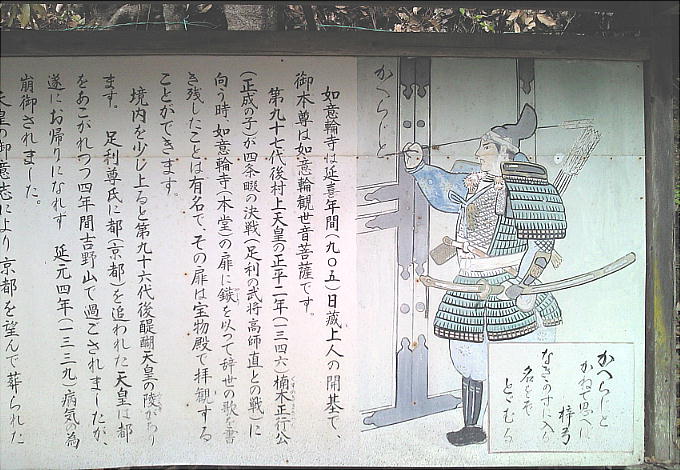 如意輪寺は延喜年間(九〇五)日蔵上人の開基で、
御本尊は如意輪観世音菩薩です。
第九十七代後村上天皇の正平二年(一三四六)楠木正行公
(正成の子)が四条畷の決戦(足利の武将高師直との戦)に
向う時、如意輪寺(本堂)の扉に鏃を以って辞世の歌を書
き残したことは有名で、その扉は宝物殿で拝観する
ことができます。
境内を少し上ると第九十六代後醍醐天皇の陵があり
ます。足利尊氏に都(京都)を追われた天皇は都
をあこがれつつ四年間吉野山で過ごされましたが、
遂にお帰りになれず 延元四年(一三三九)病気の為
崩御されました。
天皇の御意志により京都を望んで葬られた
かへらじと
かへらじと
かねて思へば
梓弓
なき数に入る
名をぞ
とゞむる